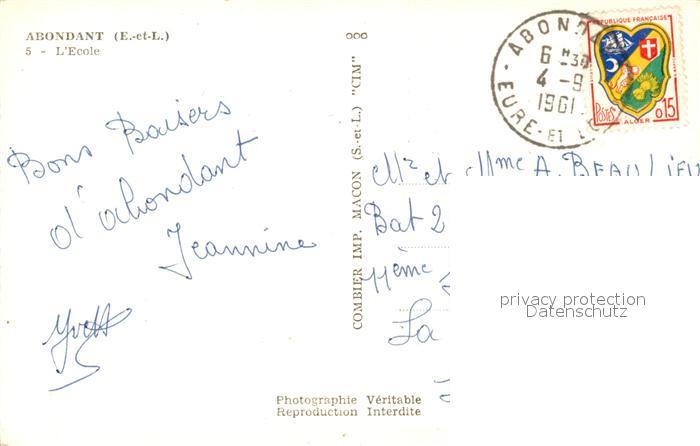 ABONDANT (E.-et-L.)
5 - L'Ecole
Bons Baisers
d'abondant
Jeannine
Yvette
COMBIER IMP. MACON (S.-et-L.) "CIM"
ABONDANT
6 H 30
4 - 9
1961
EURE-ET L
REPUBLIQUE FRANÇAISE
POSTES
0,15
ALGER
Mr et Mme A. BEAULIEU
Bat 2
11ème
La
privacy protection
Datenschutz
Photographie Véritable
Reproduction Interdite